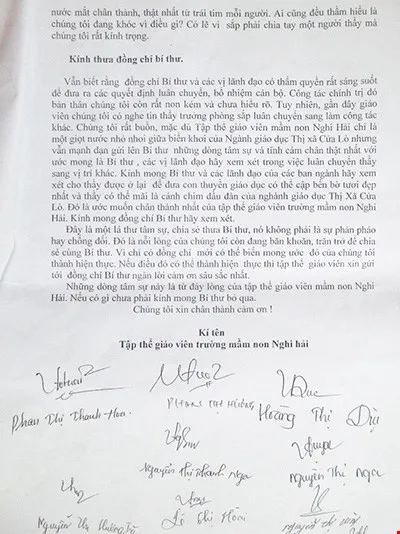 nước mắt chân thành, thật nhất từ trái tim mỗi người. Ai cũng đều thầm hiểu là
chúng tôi đang khóc vì điều gì? Có lẽ vì sắp phải chia tay một người thầy mà
chúng tôi rất kính trọng.
Kính thưa đồng chí bí thư.
Vẫn biết rằng đồng chí Bí thư và các vị lãnh đạo có thẩm quyền rất sáng suốt
để đưa ra các quyết định luân chuyển, bổ nhiệm cán bộ. Công tác chính trị đó
bản thân chúng tôi còn rất non kém và chưa hiểu rõ. Tuy nhiên, gần đây giáo
viên chúng tôi có nghe tin thầy trưởng phòng sắp luân chuyển sang làm công tác
khác. Chúng tôi rất buồn, mặc dù Tập thể giáo viên mầm non Nghi Hải chỉ là
một giọt nước nhỏ nhoi giữa biển khơi của Ngành giáo dục Thị xã Cửa Lò nhưng
vẫn mạnh dạn gửi lên Bí thư những dòng tâm sự và tình cảm chân thật nhất với
ước mong là Bí thư , các vị lãnh đạo hãy xem xét trong việc luân chuyển thầy
sang vị trí khác. Kính mong Bí thư và các lãnh đạo của các ban ngành hãy xem
xét cho thầy được ở lại để đưa con thuyền giáo dục có thể cập bến bờ tươi đẹp
nhất và thầy có thể mãi là cánh chim đầu đàn của nghành giáo dục Thị Xã Cửa
Lò. Đó là ước muốn chân thành nhất của tập thể giáo viên trường mầm non Nghi
Hải. Kính mong đồng chí Bí thư hãy xem xét.
Đây là một lá thư tâm sự, chia sẻ thưa Bí thư, nó không phải là sự phản pháo
hay chống đối. Đó là nỗi lòng của chúng tôi còn đang băn khoăn, trăn trở để chia
sẻ cùng Bí thư. Vì chỉ có đồng chí mới có thể biến mong ước đó của chúng tôi
thành hiện thực. Nếu điều đó có thể thành hiện thực thì tập thể giáo viên xin gửi
tới đồng chí Bí thư ngàn lời cảm ơn sâu sắc nhất.
Những dòng tâm sự này là từ đáy lòng của tập thể giáo viên mầm non Nghi
Hải. Nếu có gì chưa phải kính mong Bí thư bỏ qua.
Chúng tôi xin chân thành cảm ơn !
Kí tên
Tập thể giáo viên trường mầm non Nghi hải
Phan Thị Thanh Hoa Hoàng Thị Dịu
Nguyễn Thị Thanh Nga Nguyễn Thị Nga
Nguyễn Thị Hương Lê Thị Hoài